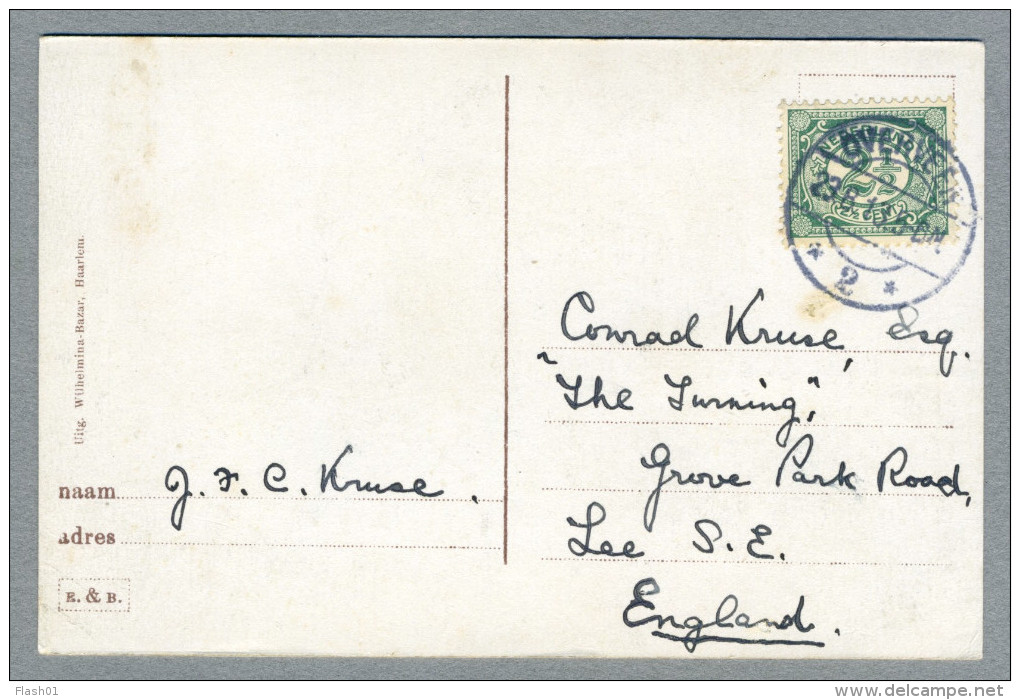 Uitg. Wilhelmina-Bazar, Haarlem.
naam J. F. C. Kruse.
adres
E. & B.
NEDERLAND
2½
2½ CENT
OVERVEEN
2
Conrad Kruse, Esq.
"The Turning",
Grove Park Road,
Lee S. E.
England.
Flash01
www.delcampe.net